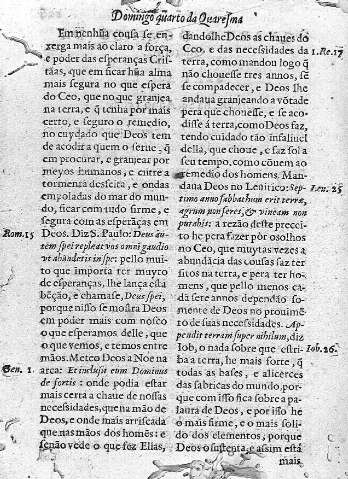 Domingo quarto da Quaresma
Em nenhũa cousa se en-
xerga mais ao claro a força,
e poder das esperanças Cris-
tãas, que em ficar hũa alma
mais segura no que espera
do Ceo, que no que granjea
na terra, e q̃ tenha por mais
certo, e seguro o remedio,
no cuydado que Deos tem
de acodir a quem o serue, q̃
em procurar, e granjear por
meyos humanos, e entre a
tormenta desfeita, e ondas
empoladas do mar do mun-
do, ficar com tudo firme, e
segura com as esperãças em
Rom. 15 Deos. Diz S. Paulo: Deus au-
tem spei repleat vos omni gaudio
vt abundetis in spe: pello muito
que importa ter muyto
de esperanças, lhe lança esta
bẽção, e chamase, Deus spei,
porque nisso se mostra Deos
em poder mais com nosco
o que esperamos delle, que
o que vemos, e temos entre
mãos. Meteo Deos a Noe na
Gen. 7. arca: Et inclusit eum Dominus
de foris: onde podia estar
mais certa a chaue de nossas
necessidades, que na mão de
Deos, e onde mais arriscada
que nas mãos dos homẽs: e
senão vede o que fez Elias,
dandolhe Deos as chaues do
Ceo, e das necessidades da 1. Re. 17
terra, como mandou logo q̃
não chouesse tres annos, sẽ
se compadecer, e Deos lhe
andaua granjeando a võtade
pera que chouesse, e se aco-
disse á terra, como Deos faz,
tendo cuidado tão infaliuel
della, que choue, e faz sol a
seu tempo, como cõuem ao
remedio dos homens. Man-
daua Deos no Leuitico: Sep- Leu. 25
timo anno sabbathum erit terræ,
agrum non seres, & vineam non
putabis: a rezão deste precei-
to he pera fazer pór os olhos
no Ceo, que muytas vezes a
abundãcia das cousas faz ter
fitos na terra, e pera ter ho-
mens, que pello menos ca-
da sete annos dependão so-
mente de Deos no prouimẽ-
to de suas necessidades. Ap-
pendit terram super nihilum, diz
Iob, o nada sobre que estri- Iob. 26.
ba a terra, he mais forte, q̃
todas as bases, e alicerces
das fabricas do mundo, por-
que com isso fica sobre a pa-
laura de Deos, e por isso he
o mais firme, e o mais soli-
do dos elementos, porque
Deos o sustenta, e assim está
mais